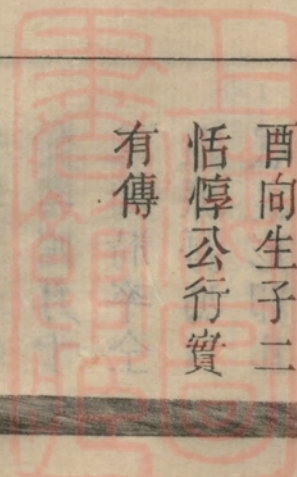 酉向生子二
恬惇公行實
有傳